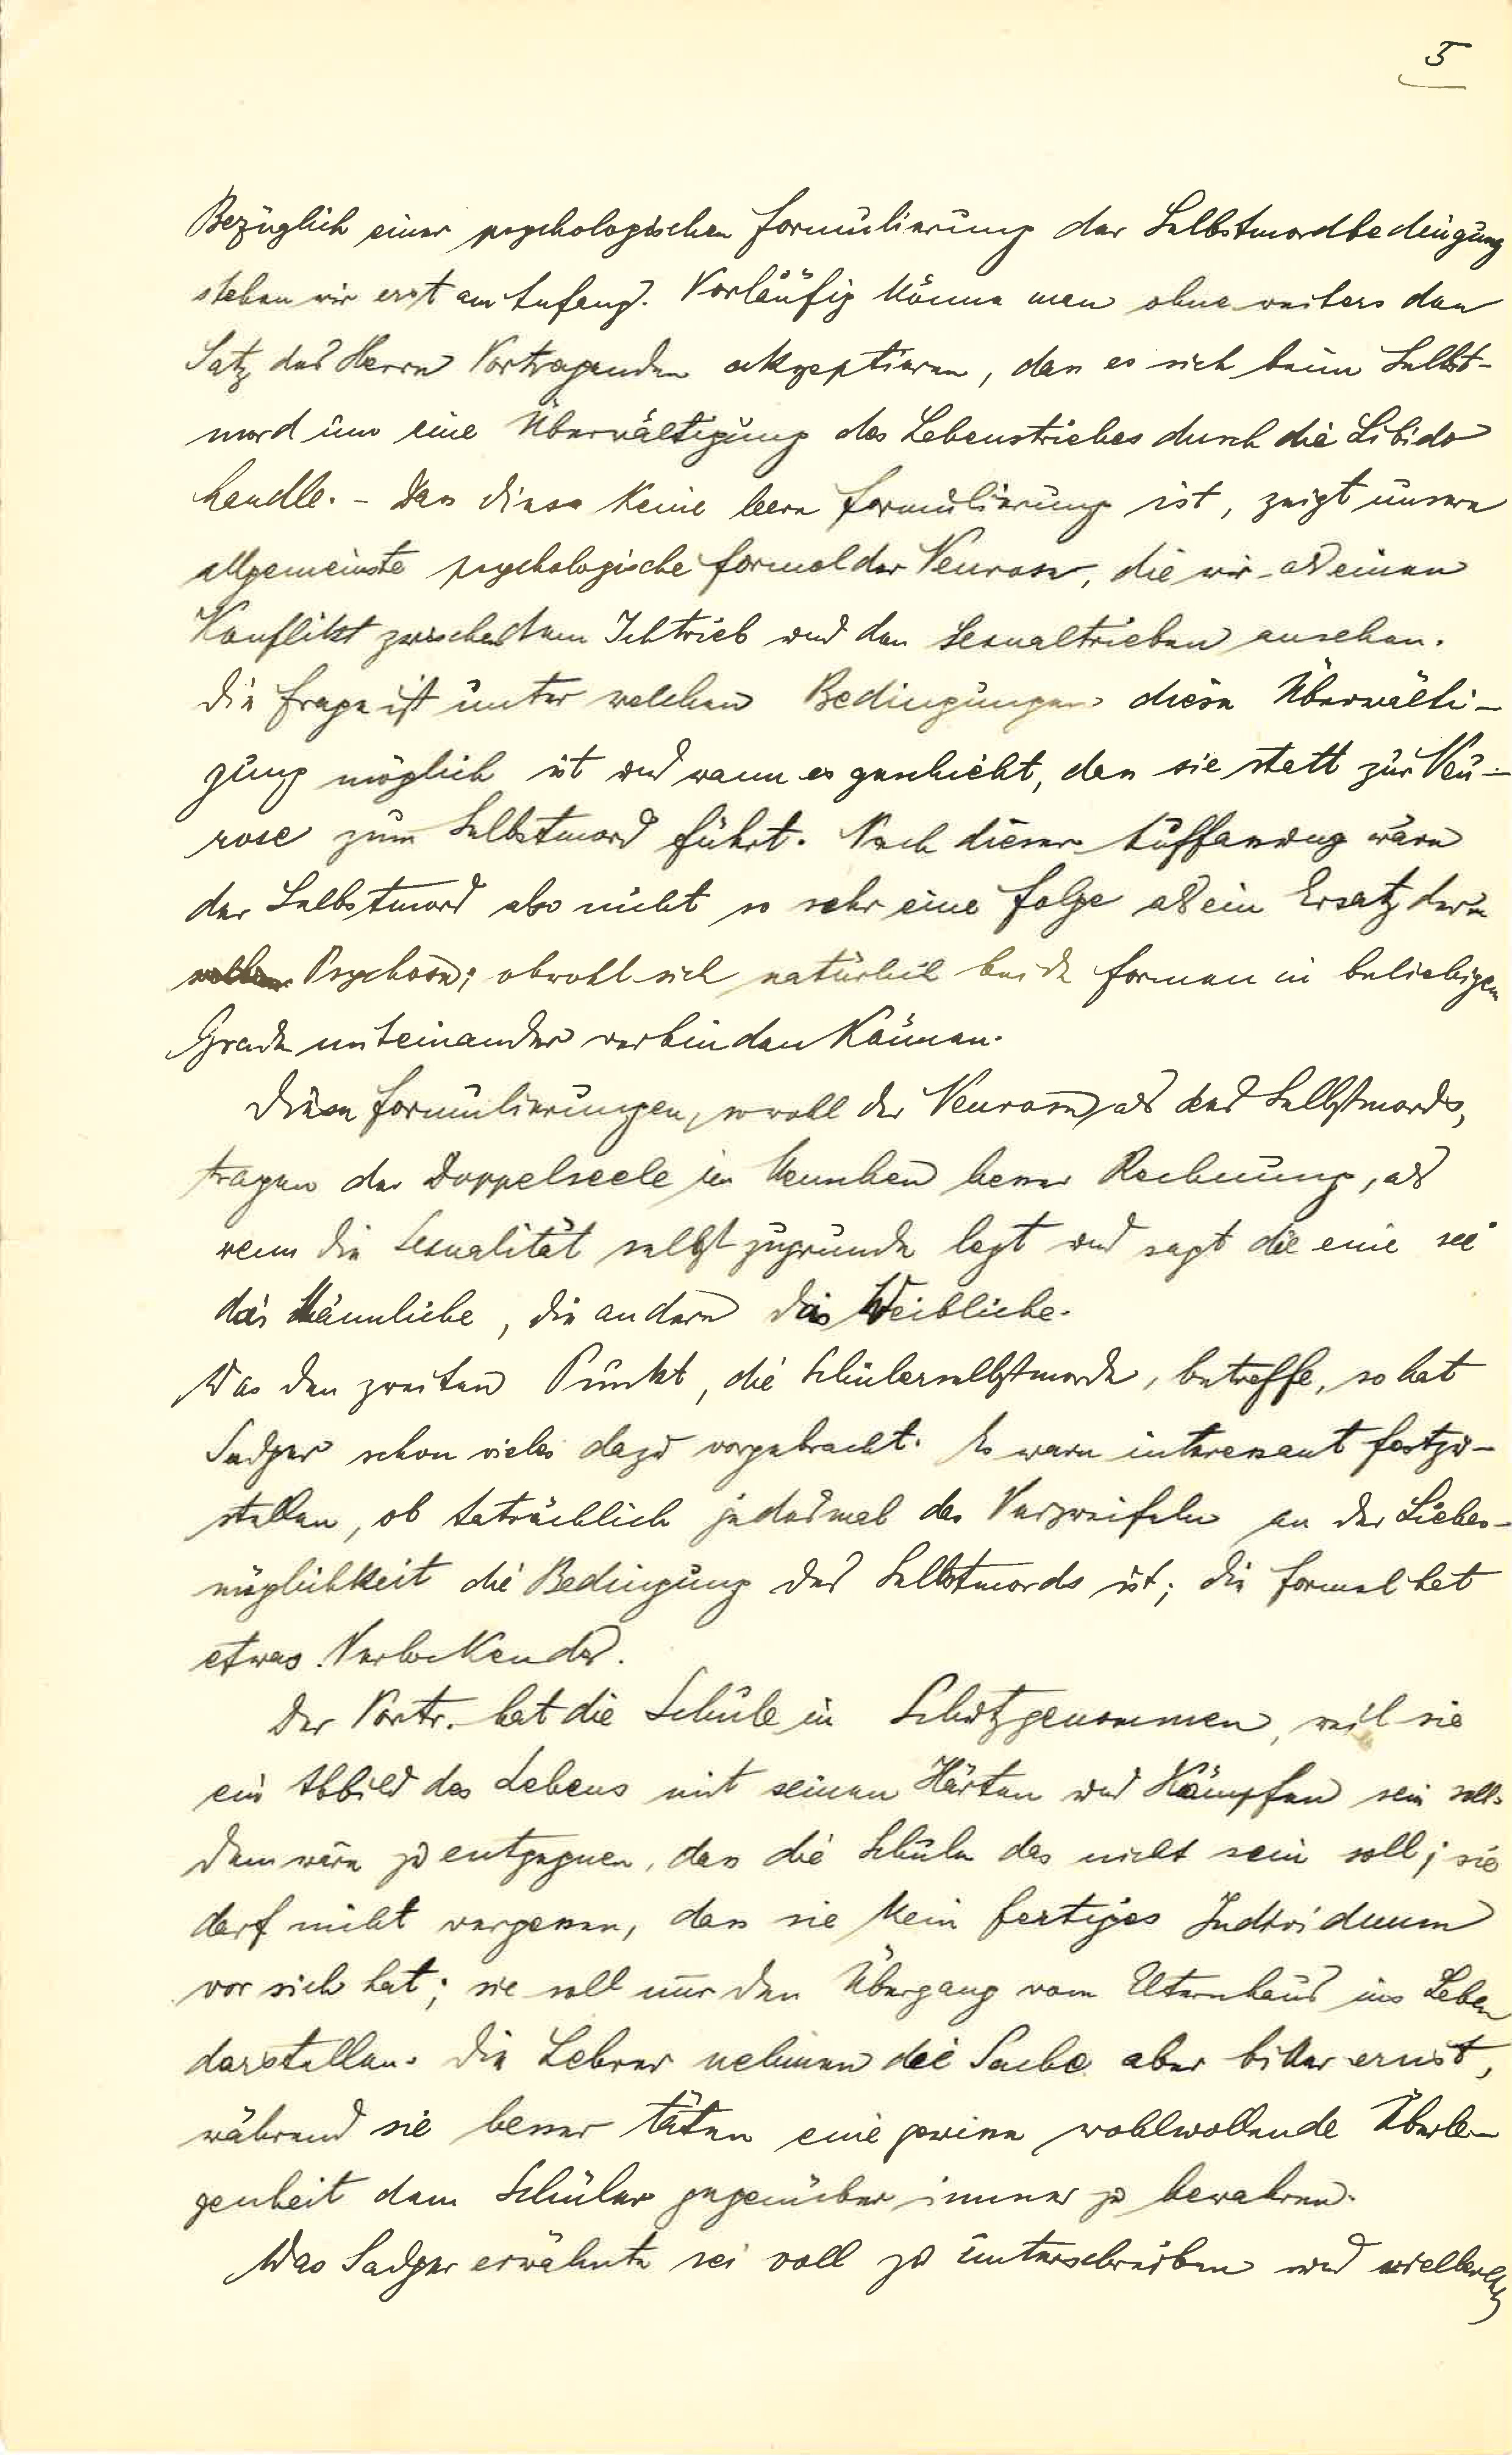 5
Bezüglich einer psychologischen Formulierung der Selbstmordbedingung
stehen wir erst am Anfang. Vorläufig könne man ohneweiters den
Satz des Herrn Vortragenden akzeptieren, dass es sich beim Selbst-
mord um eine Überwältigung des Lebenstriebes durch die Libido
handle. – Dass diese keine leere Formulierung ist, zeigt unsere
allgemeinste psychologische Formel der Neurose, die wir als einen
Konflikt zwischen dem Ichtrieb und den Sexualtrieben ansehen.
Die Frage ist unter welchen Bedingungen diese Überwälti-
gung möglich ist und wann es geschieht, dass sie statt zur Neu-
rose zum Selbstmord führt. Nach dieser Auffassung wäre
der Selbstmord also nicht so sehr eine Folge als ein Ersatz der
Psychose; obwohl sich natürlich beide Formen in beliebigem
Grade miteinander verbinden können.
Diese Formulierungen, sowohl der Neurose als des Selbstmords,
tragen der Doppelseele im Menschen besser Rechnung, als
wenn die Sexualität selbst zugrunde legt und sagt die eine sei
das Männliche, die andere das Weibliche.
Was den zweiten Punkt, die Schülerselbstmorde, betreffe, so hat
Sadger schon vieles dazu vorgebracht. Es wäre interessant festzu-
stellen, ob tatsächlich jedesmal das Verzweifeln an der Liebes-
möglichkeit die Bedingung des Selbstmords ist; die Formel hat
etwas Verlockendes.
Der Vortr. hat die Schule in Schutz genommen, weil sie
ein Abbild des Lebens mit seinen Härten und Kämpfen sein soll.
Dem wäre zu entgegnen, dass die Schule das nicht sein soll; sie
darf nicht vergessen, dass sie kein fertiges Individuum
vor sich hat; sie soll nur den Übergang vom Elternhaus ins Leben
darstellen. Die Lehrer nehmen die Sache aber bitter ernst,
während sie besser täten eine gewisse wohlwollende Überle-
genheit dem Schüler gegenüber immer zu bewahren.
Was Sadger erwähnte sei voll zu unterschreiben und vielleicht